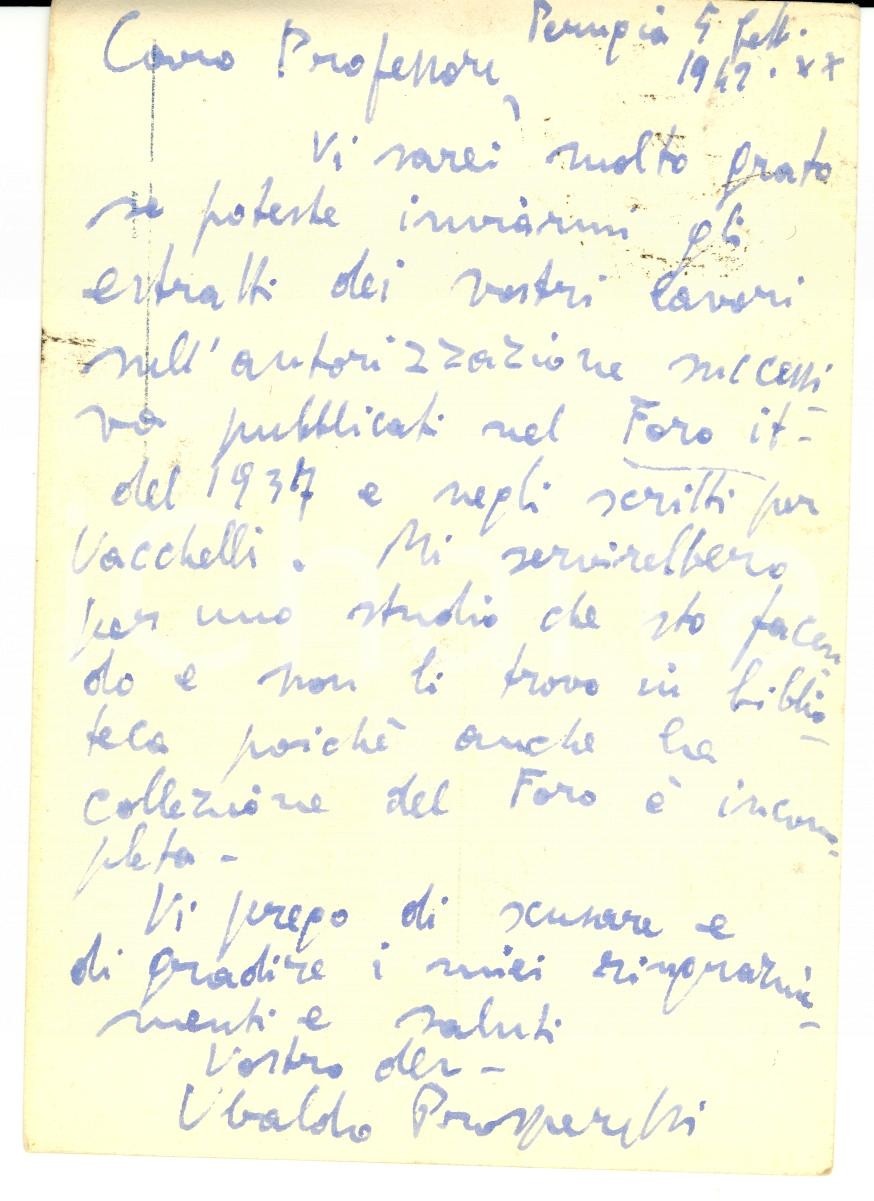 Perugia 5 sett.
1942. XX
Caro Professore,
Vi sarei molto grato
se poteste inviarmi gli
estratti dei vostri lavori
sull'autorizzazione successi
va pubblicati nel Foro it-
del 1937 e negli scritti per
Vacchelli. Mi servirebbero
per uno studio che sto facen
do e non li trovo in biblio-
teca poichè anche la
collezione del Foro è incom-
pleta-
Vi prego di scusare e
di gradire i miei ringrazia-
menti e saluti
Vostro dev-
Ubaldo Prosperetti